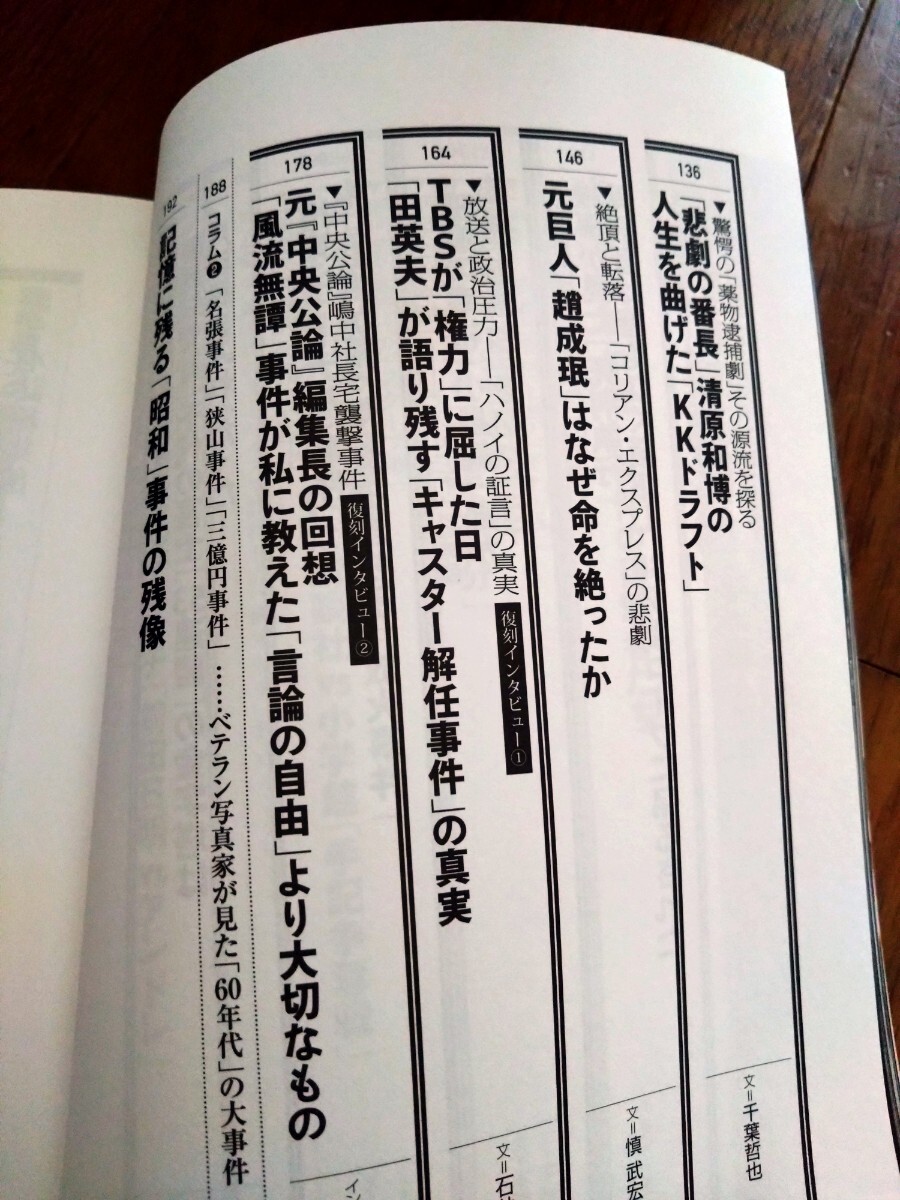 136
▼驚愕の「薬物逮捕劇」その源流を探る
「悲劇の番長」清原和博の
人生を曲げた「KKドラフト」
文=千葉哲也
146
▼絶頂と転落——「コリアン・エクスプレス」の悲劇
元巨人「趙成珉」はなぜ命を絶ったか
文=慎 武宏
164
▼放送と政治圧力——「ハノイの証言」の真実
復刻インタビュー①
TBSが「権力」に屈した日
「田英夫」が語り残す「キャスター解任事件」の真実
文=石
178
▼『中央公論』嶋中社長宅襲撃事件
復刻インタビュー②
元『中央公論』編集長の回想
「風流無譚」事件が私に教えた「言論の自由」より大切なもの
イン
188
コラム❷ 「名張事件」「狭山事件」「三億円事件」……ベテラン写真家が見た「60年代」の大事件
192
記憶に残る「昭和」事件の残像